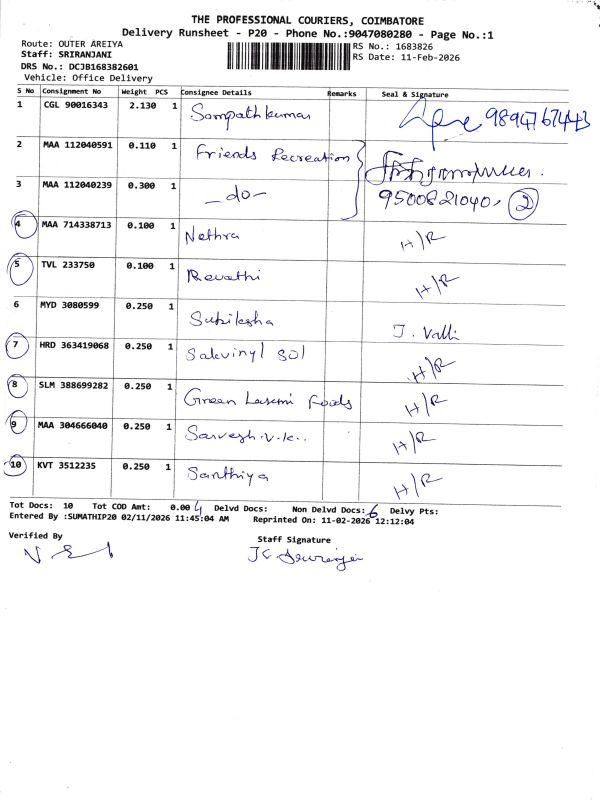 THE PROFESSIONAL COURIERS, COIMBATORE
Delivery Runsheet - P20 - Phone No.:9047080280 - Page No.:1
Route: OUTER AREIYA
RS No.: 1683826
Staff: SRIRANJANI
RS Date: 11-Feb-2026
DRS No.: DCJB168382601
Vehicle: Office Delivery
S No Consignment No Weight PCS Consignee Details Remarks Seal & Signature
1 CGL 90016343 2.130 1 Sampathkumar 9894767443
2 MAA 112040591 0.110 1 Friends Recreation
3 MAA 112040239 0.300 1 -do- 9500821040. 2
4 MAA 714338713 0.100 1 Nethra H/R
5 TVL 233750 0.100 1 Revathi H/R
6 MYD 3080599 0.250 1 Subiksha J. Valli
7 HRD 363419068 0.250 1 Sakvinyl sol H/R
8 SLM 388699282 0.250 1 Green Laxmi Foods H/R
9 MAA 304666040 0.250 1 Sarvesh.v.k.. H/R
10 KVT 3512235 0.250 1 Santhiya H/R
Tot Docs: 10 Tot COD Amt: 0.00 4 Delvd Docs: Non Delvd Docs: 6 Delvy Pts:
Entered By :SUMATHIP20 02/11/2026 11:45:04 AM Reprinted On: 11-02-2026 12:12:04
Verified By
Staff Signature